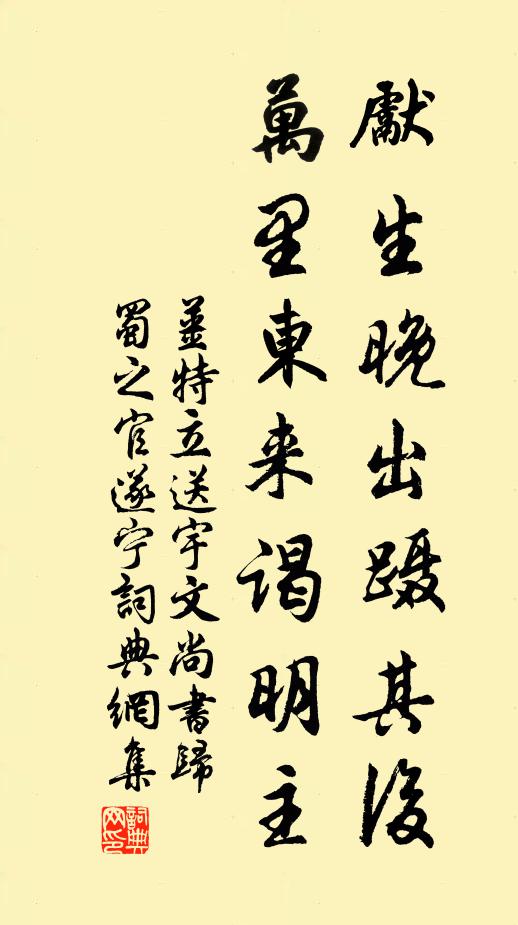 獻生晚出蹑其後
萬里東来謁明主
姜特立送宇文尚書歸
蜀之官遂宁詞典網集
詞典
网印